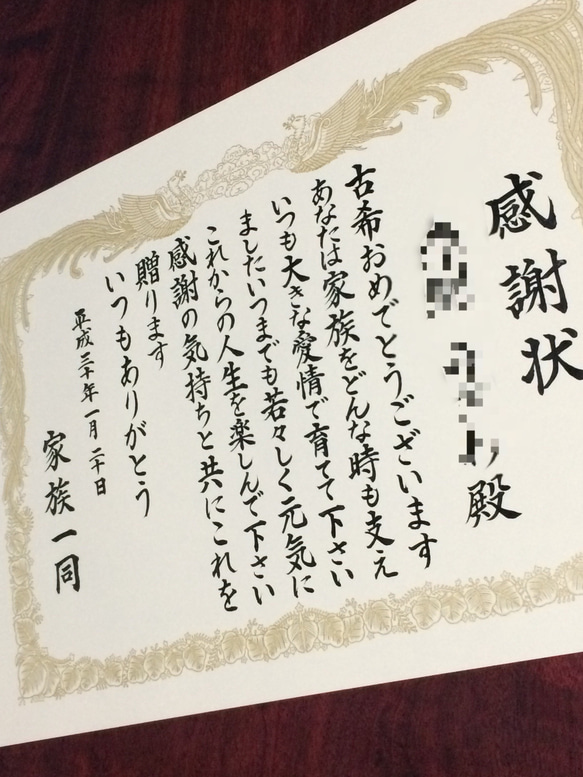 感謝状
殿
古希おめでとうございます
あなたは家族をどんな時も支え
いつも大きな愛情で育てて下さい
ましたいつまでも若々しく元気に
これからの人生を楽しんで下さい
感謝の気持ちと共にこれを
贈ります
いつもありがとう
平成三十年一月二十日
家族一同